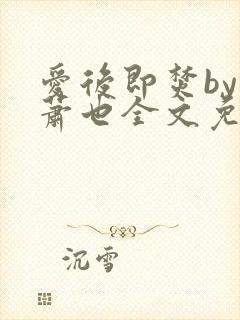 爱後即焚by
蕭也全文免
沉雪